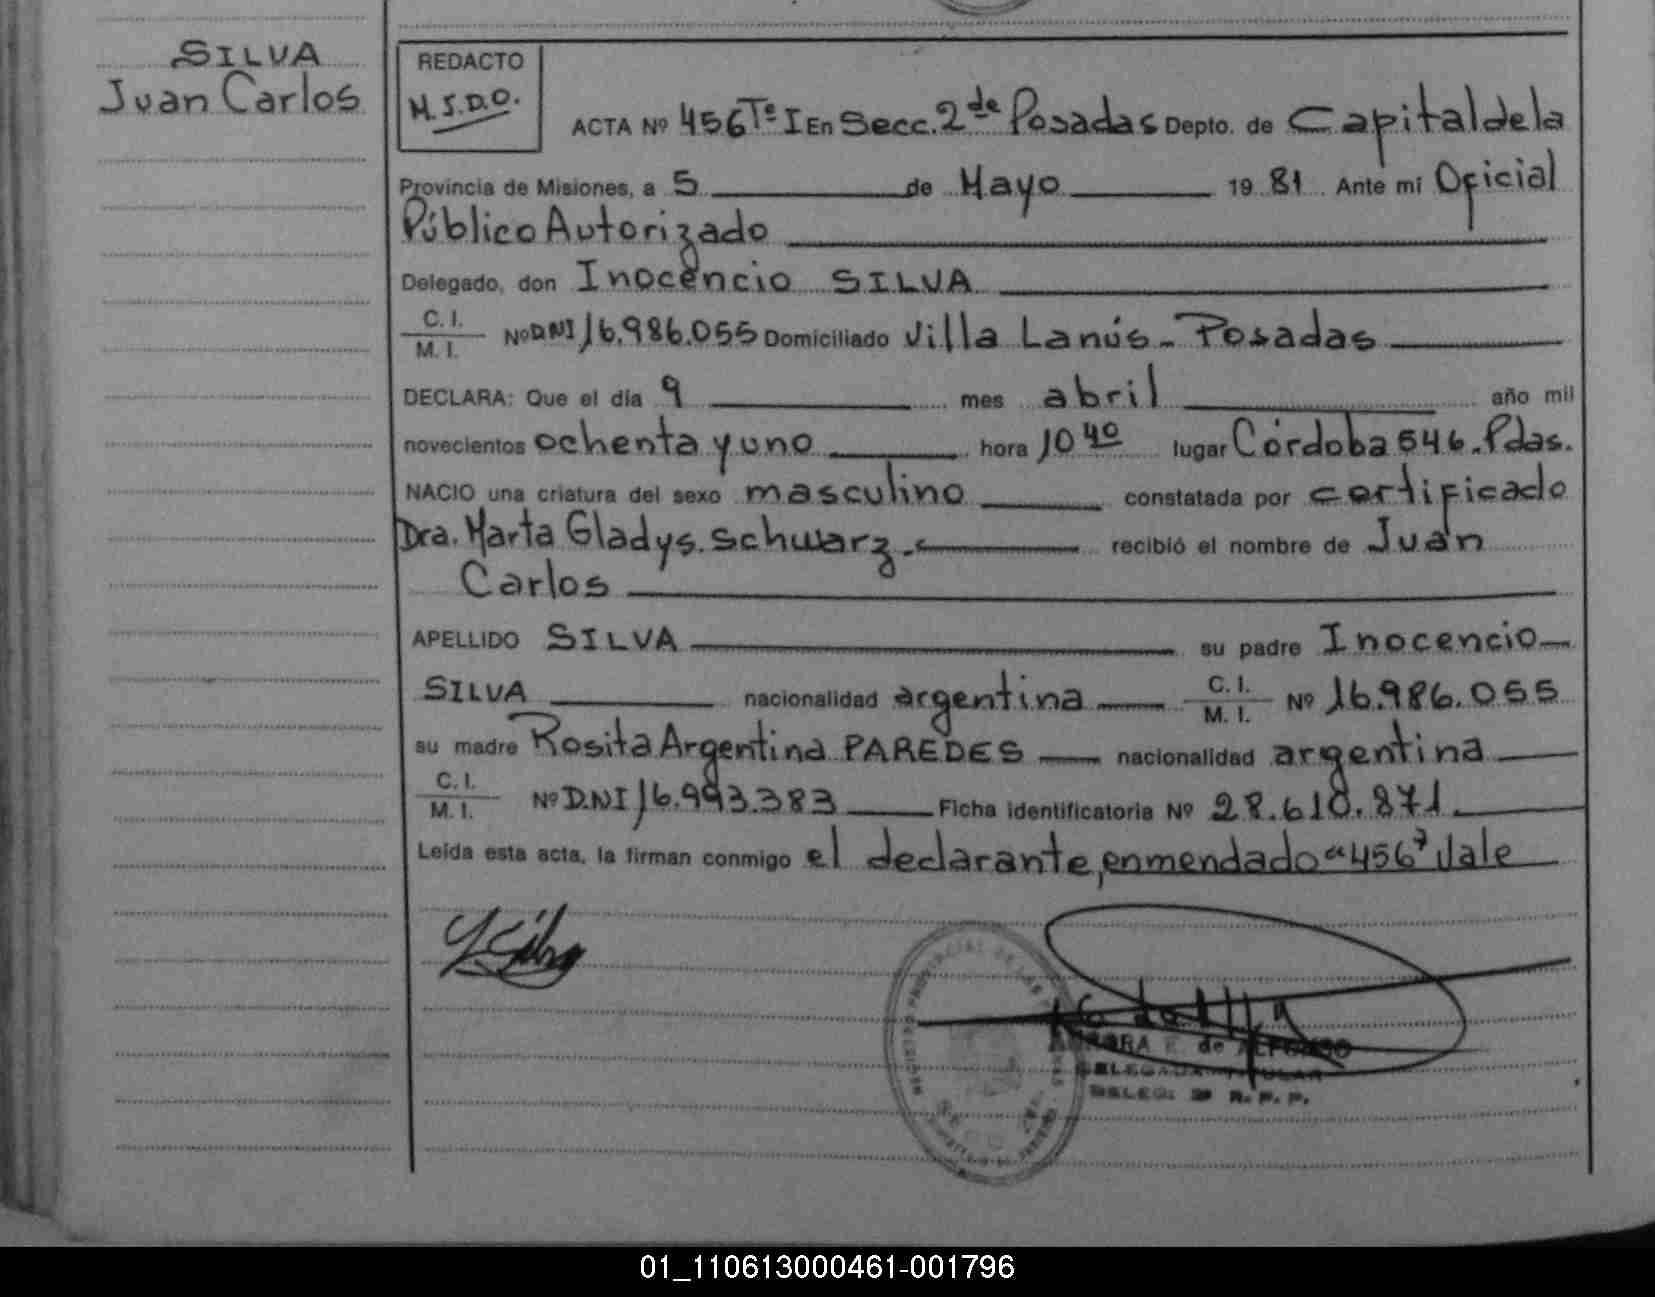 SILVA
Juan Carlos
REDACTO
M.S.D.O.
ACTA Nº 456 Tº I En Secc. 2da Posadas Depto. de Capital de la
Provincia de Misiones, a 5 de Mayo 19 81 Ante mi Oficial
Público Autorizado
Delegado, don Inocencio SILVA
C. I.
M. I.
Nº DNI 16.986.055 Domiciliado Villa Lanús - Posadas
DECLARA: Que el día 9 mes abril año mil
novecientos ochenta y uno hora 10 40 lugar Córdoba 546. Pdas.
NACIO una criatura del sexo masculino constatada por certificado
Dra. Marta Gladys. Schwarz.- recibió el nombre de Juan
Carlos
APELLIDO SILVA su padre Inocencio
SILVA nacionalidad argentina C. I. M. I. Nº 16.986.055
su madre Rosita Argentina PAREDES nacionalidad argentina
C. I.
M. I.
Nº D.N.I 16.993.383 Ficha identificatoria Nº 28.610.871
Leída esta acta, la firman conmigo el declarante, enmendado "456" Vale
E. de
DELEGADA TITULAR
DELEG. R. P. P.
01_110613000461-001796